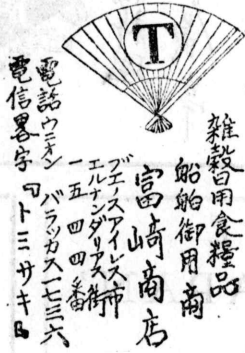 T
雑穀日用食糧品
船舶御用商
富崎商店
ブエーノスアイレス市
エルナンダリアス街
一五四四番
電話ウニオン
バラッカス一七三六
電信畧字『トミサキ』